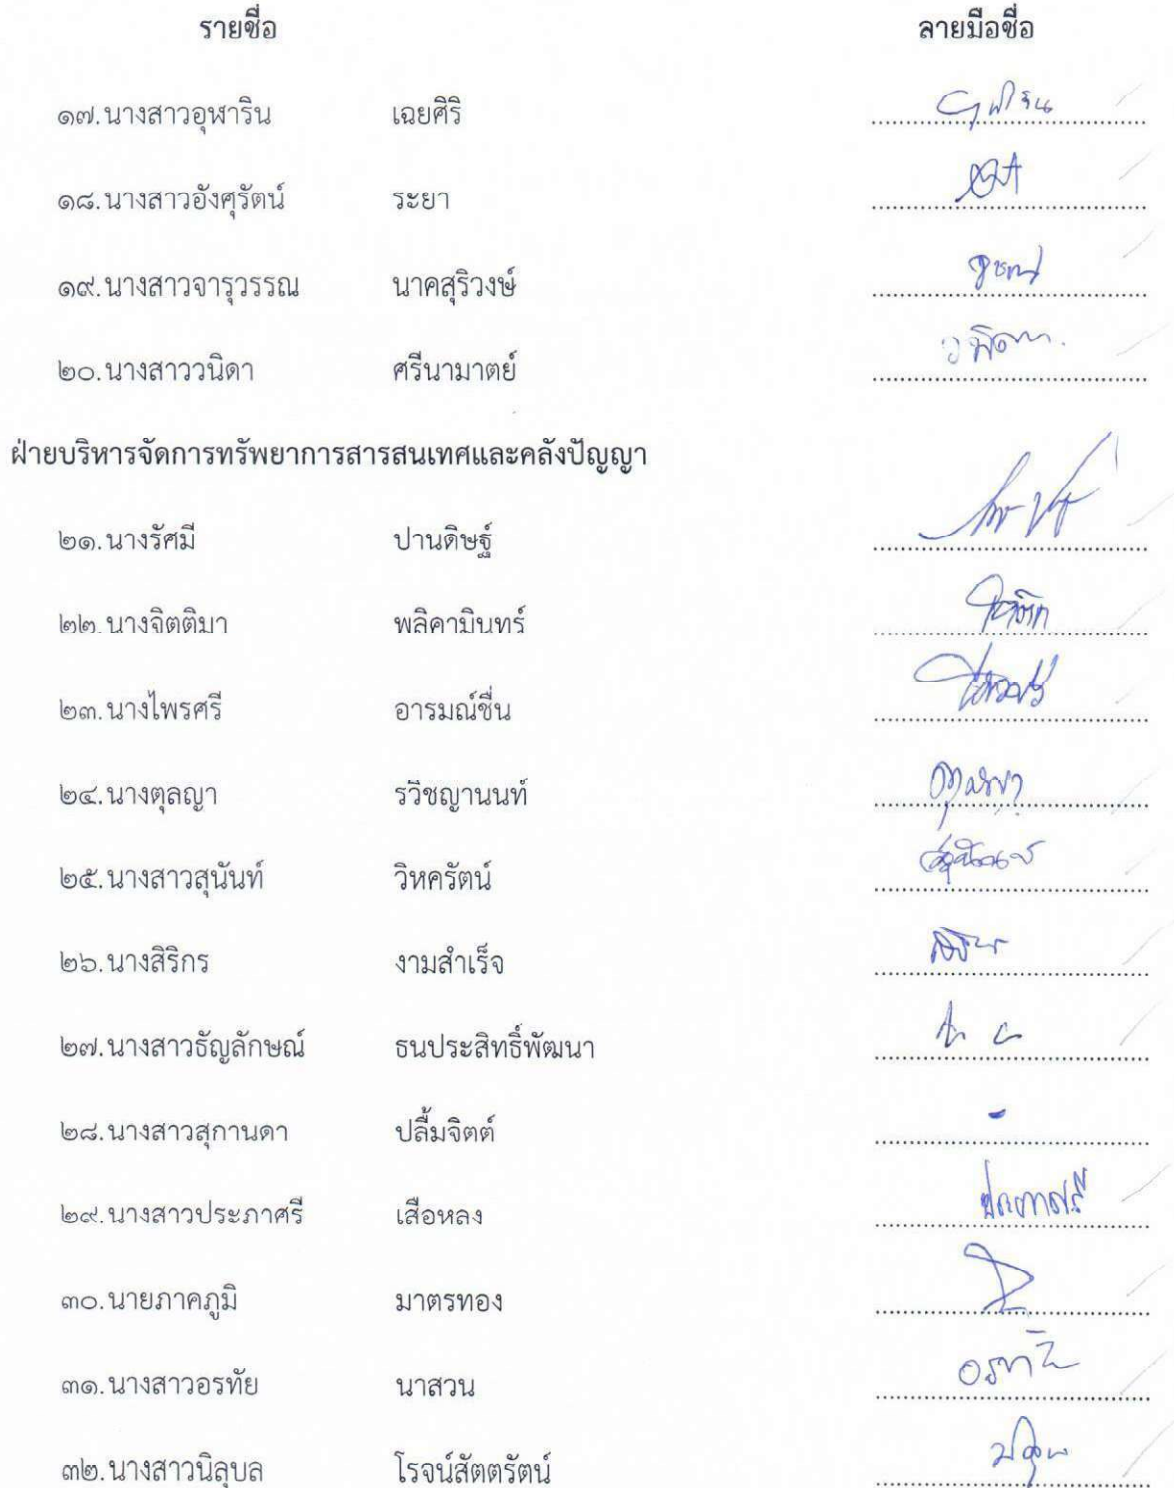 รายชื่อ ลายมือชื่อ
๑๗.นางสาวอุฬาริน เฉยศิริ
๑๘.นางสาวอังศุรัตน์ ระยา
๑๙.นางสาวจารุวรรณ นาคสุริวงษ์
๒๐.นางสาววนิดา ศรีนามาตย์
ฝ่ายบริหารจัดการทรัพยาการสารสนเทศและคลังปัญญา
๒๑.นางรัศมี ปานดิษฐ์
๒๒.นางจิตติมา พลิคามินทร์
๒๓.นางไพรศรี อารมณ์ชื่น
๒๔.นางตุลญา รวิชญานนท์
๒๕.นางสาวสุนันท์ วิหครัตน์
๒๖.นางสิริกร งามสำเร็จ
๒๗.นางสาวธัญลักษณ์ ธนประสิทธิ์พัฒนา
๒๘.นางสาวสุกานดา ปลื้มจิตต์
๒๙.นางสาวประภาศรี เสือหลง ประภาศรี
๓๐.นายภาคภูมิ มาตรทอง
๓๑.นางสาวอรทัย นาสวน อรทัย
๓๒.นางสาวนิลุบล โรจน์สัตตรัตน์